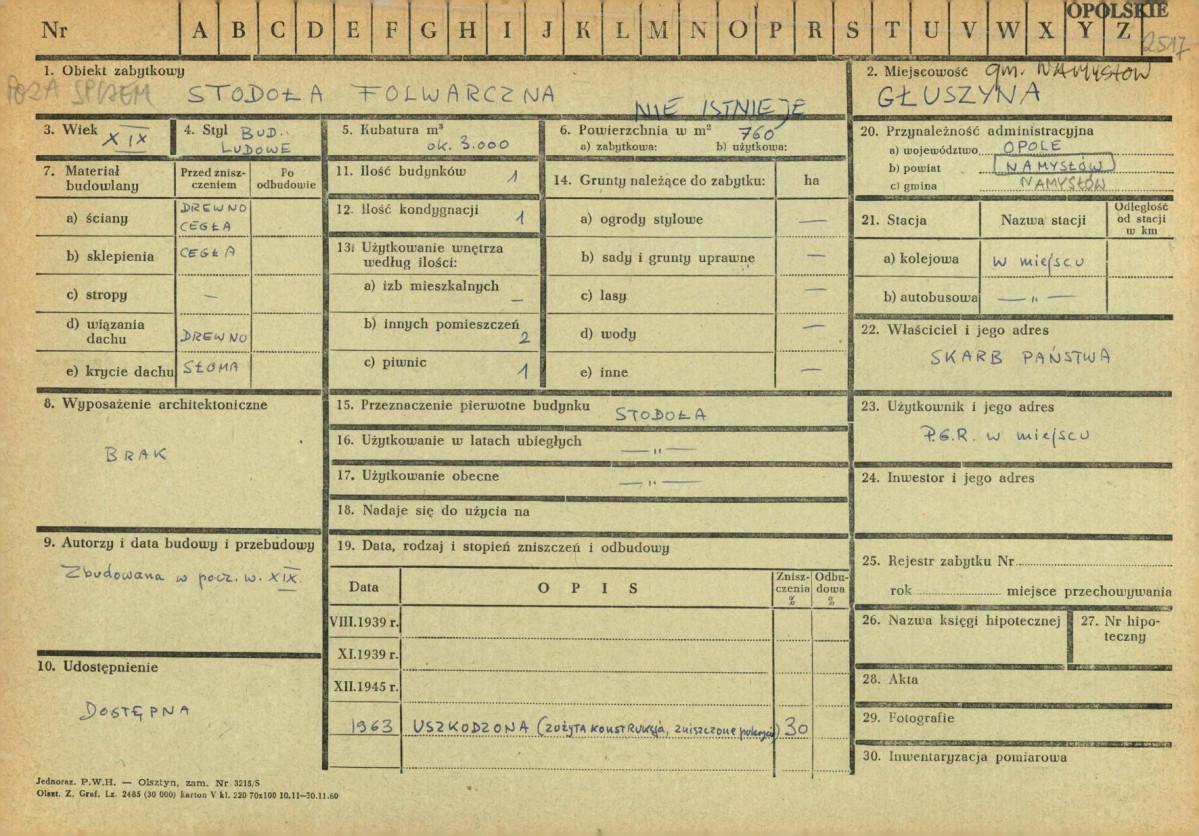 OPOLSKIE
Nr A B C D E F G H I J K L M N O P R S T U V W X Y Z
2517
1. Obiekt zabytkowy
POZA SPISEM
STODOŁA FOLWARCZNA
NIE ISTNIEJE
2. Miejscowość gm. NAMYSŁÓW
GŁUSZYNA
3. Wiek XIX
4. Styl BUD.
LUDOWE
5. Kubatura m³
ok. 3.000
6. Powierzchnia w m² 760
a) zabytkowa: b) użytkowa:
7. Materiał budowlany
Przed zniszczeniem
Po odbudowie
a) ściany DREWNO
CEGŁA
b) sklepienia CEGŁA
c) stropy —
d) wiązania
dachu DREWNO
e) krycie dachu SŁOMA
8. Wyposażenie architektoniczne
BRAK
9. Autorzy i data budowy i przebudowy
Zbudowana w pocz. w. XIX.
10. Udostępnienie
DOSTĘPNA
11. Ilość budynków 1
12. Ilość kondygnacji 1
13. Użytkowanie wnętrza
według ilości:
a) izb mieszkalnych —
b) innych pomieszczeń 2
c) piwnic 1
14. Grunty należące do zabytku: ha
a) ogrody stylowe —
b) sady i grunty uprawne —
c) lasy —
d) wody —
e) inne —
15. Przeznaczenie pierwotne budynku STODOŁA
16. Użytkowanie w latach ubiegłych — " —
17. Użytkowanie obecne — " —
18. Nadaje się do użycia na
19. Data, rodzaj i stopień zniszczeń i odbudowy
Data OPIS Zniszczenia % Odbudowa %
VIII.1939 r.
XI.1939 r.
XII.1945 r.
1963 USZKODZONA (ZUŻYTA KONSTRUKCJA, zniszczone pokrycie) 30
20. Przynależność administracyjna
a) województwo OPOLE
b) powiat NAMYSŁÓW
c) gmina NAMYSŁÓW
21. Stacja Nazwa stacji Odległość
od stacji
w km
a) kolejowa w miejscu
b) autobusowa — " —
22. Właściciel i jego adres
SKARB PAŃSTWA
23. Użytkownik i jego adres
P.G.R. w miejscu
24. Inwestor i jego adres
25. Rejestr zabytku Nr
rok miejsce przechowywania
26. Nazwa księgi hipotecznej
27. Nr hipo-
teczny
28. Akta
29. Fotografie
30. Inwentaryzacja pomiarowa
Jednoraz. P.W.H. — Olsztyn, zam. Nr 3218/S
Olszt. Z. Graf. Lz. 2485 (30 000) karton V kl. 220 70x100 10.11—30.11.60